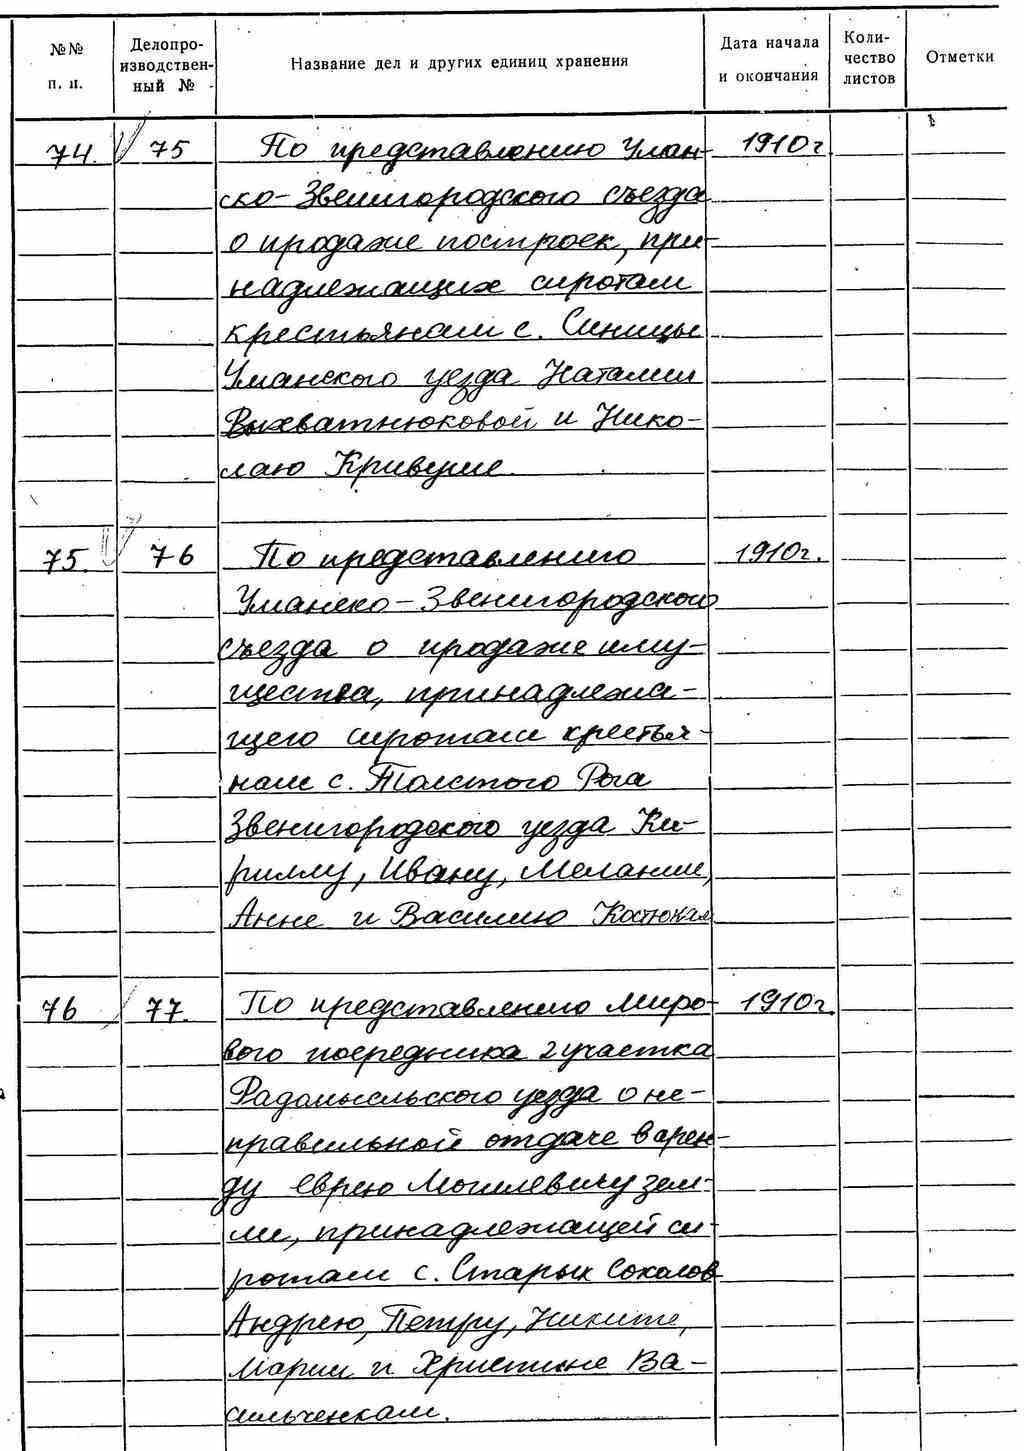 №№ п. п. Делопро-изводствен-ный № Название дел и других единиц хранения Дата начала и окончания Коли-чество листов Отметки
74. 75 По представлению Уман- 1910г
ско-Звенигородского съезда
о продаже построек, при-
надлежащих сиротам
крестьянам с. Синицы
Уманского уезда Наталии
Выхватнюковой и Нико-
лаю Кривуше.
75. 76 По представлению 1910г.
Уманско-Звенигородского
съезда о продаже иму-
щества, принадлежа-
щего сиротам крестья-
нам с. Толстого Рога
Звенигородского уезда Ки-
риллу, Ивану, Мелании,
Анне и Василию Костюкам
76 77. По представлению миро- 1910г.
вого посредника 2 участка
Радомысльского уезда о не-
правильной отдаче в арен-
ду еврею Могилевичу зем-
ли, принадлежащей си-
ротам с. Старых Соколов
Андрею, Петру, Никите,
Марии и Христине Ва-
сильченкам.